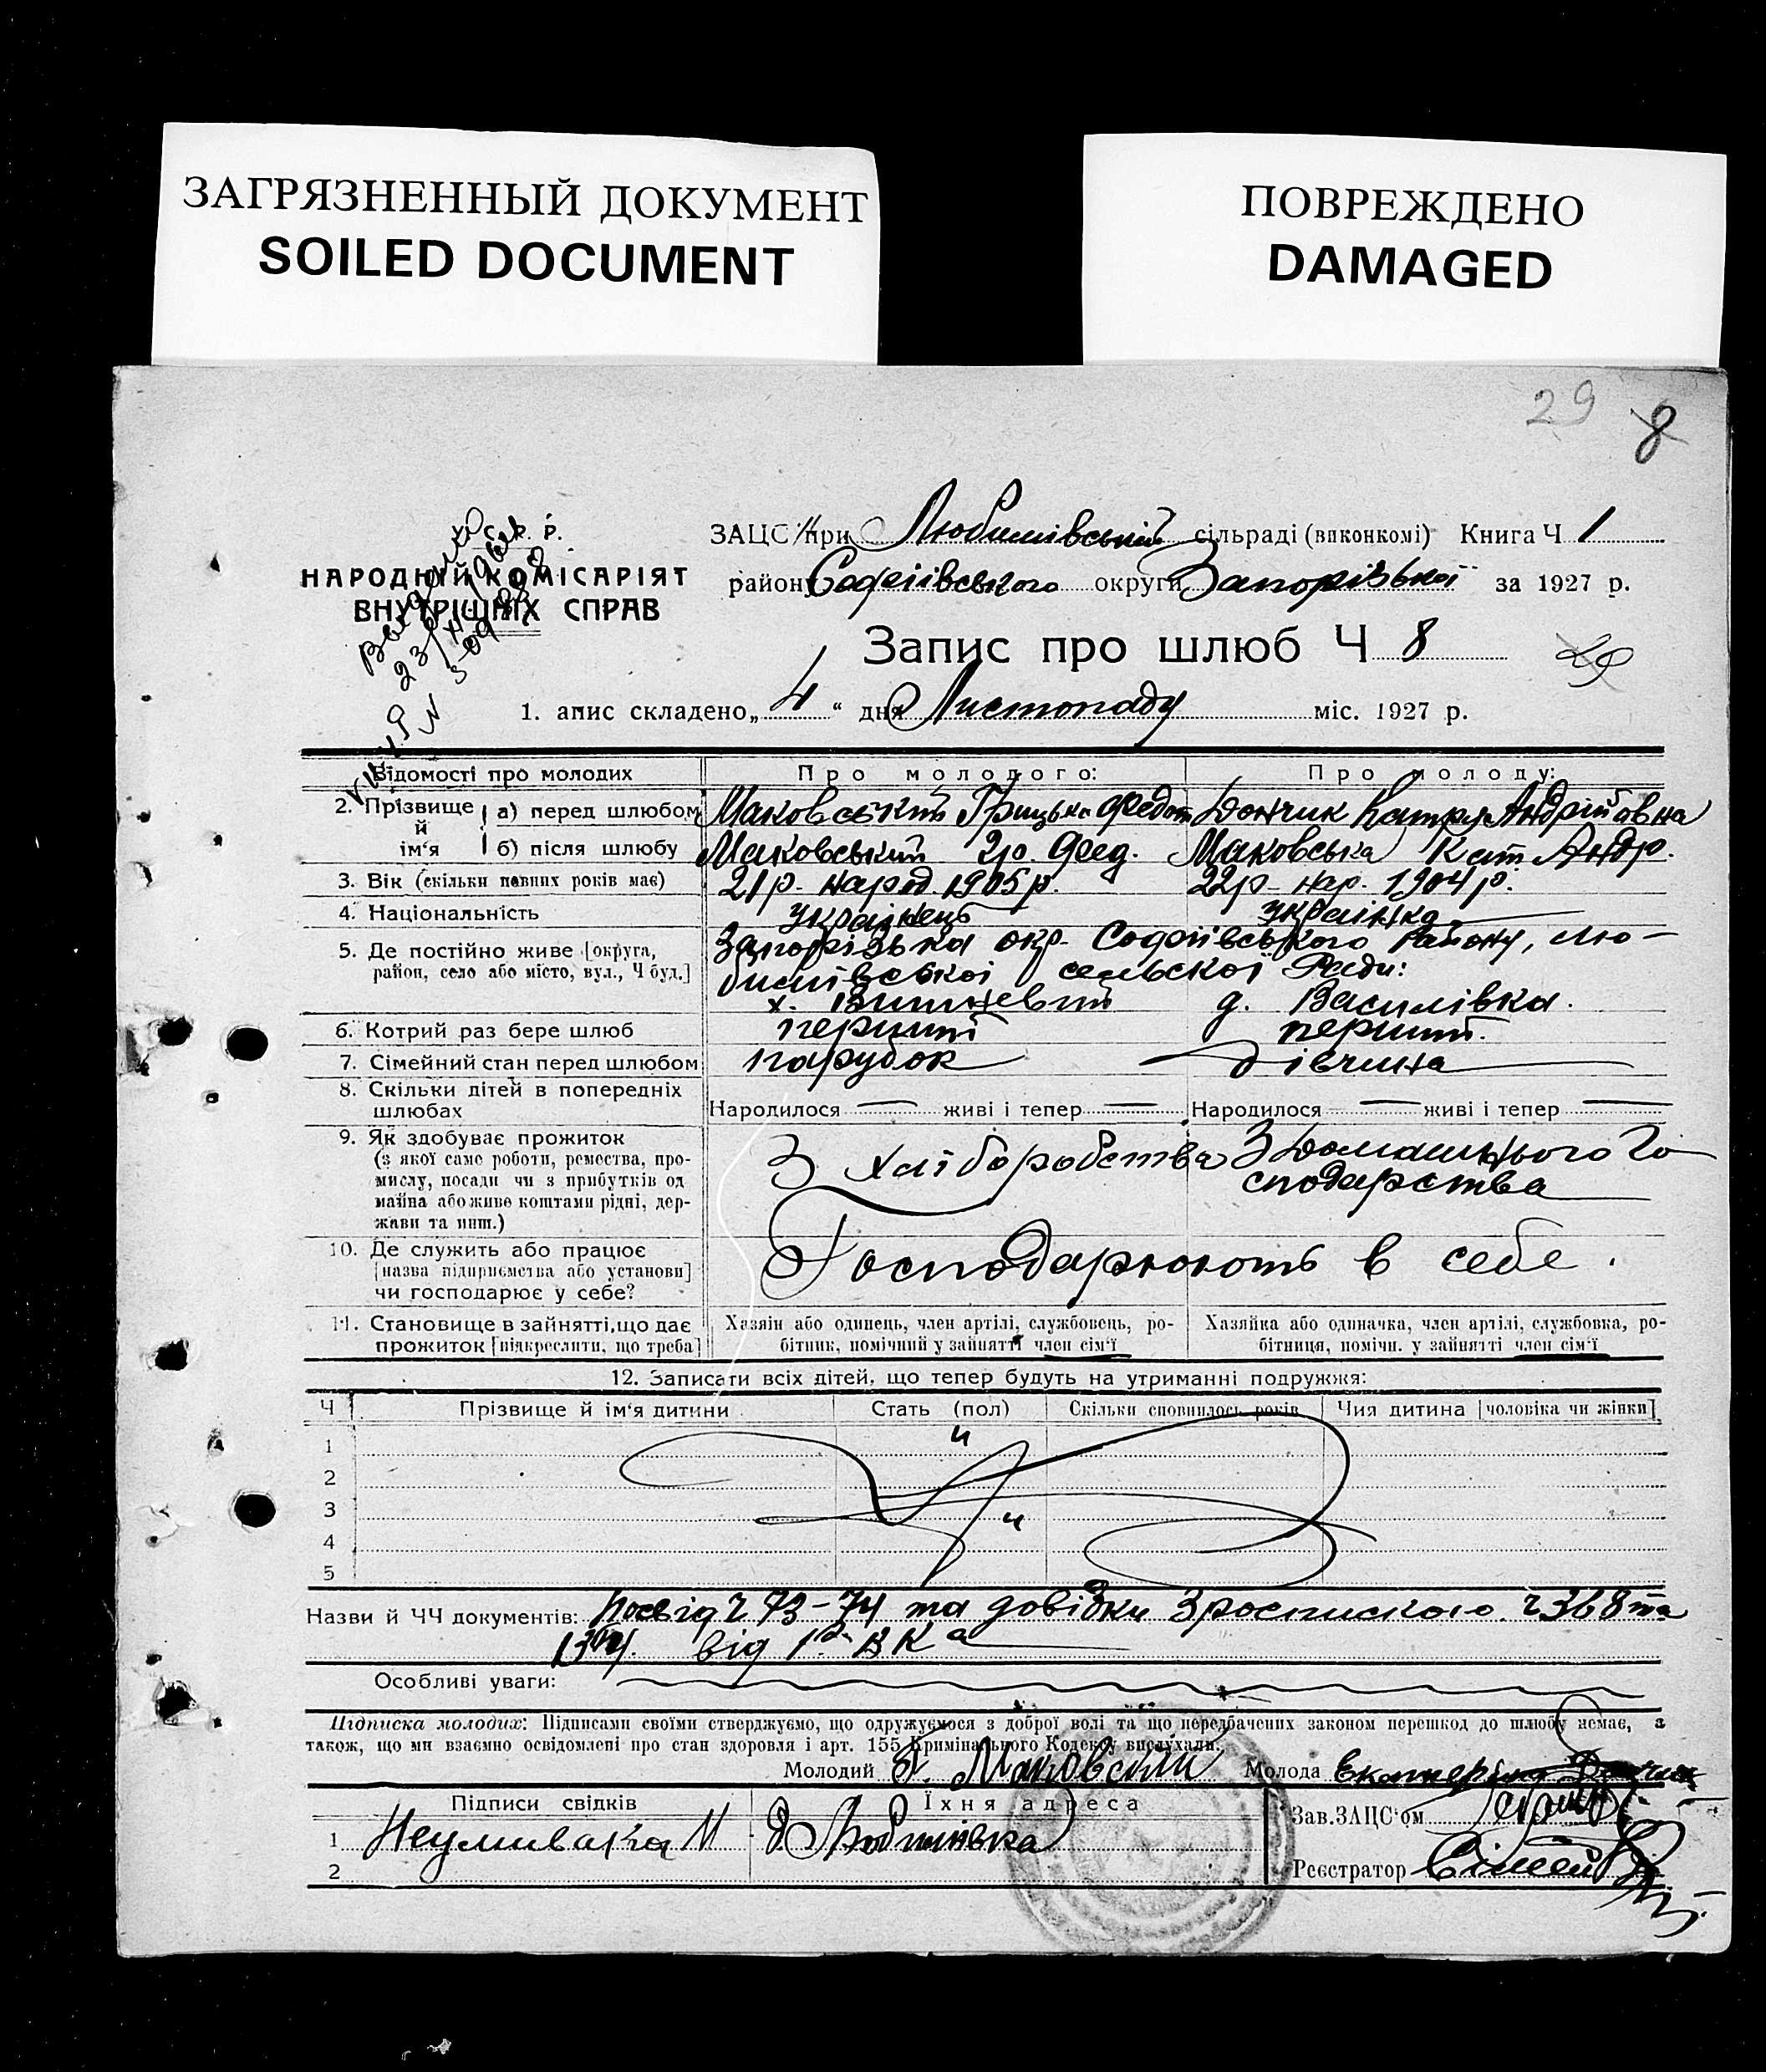 ЗАГРЯЗНЕННЫЙ ДОКУМЕНТ
SOILED DOCUMENT
ПОВРЕЖДЕНО
DAMAGED
29 8
У. С. Р. Р.
НАРОДНІЙ КОМІСАРІЯТ
ВНУТРІШНІХ СПРАВ
ЗАЦС при Любимівській сільраді (виконкомі) Книга Ч 1
району Софіівського округи Запорізькоі за 1927 р.
Запис про шлюб Ч 8
1. апис складено „ 4 “ дня Листопаду міс. 1927 р.
Відомості про молодих
Про молодого:
Про молоду:
2. Прізвище й ім'я
а) перед шлюбом Маковський Грицько Федот Дончик Катря Андріівна
б) після шлюбу Маковський Гр. Фед. Маковська Кат Андр.
3. Вік (скільки повних років має) 21 р. народ. 1905 р. 22 р. нар. 1904 р.
4. Національність українець українка
5. Де постійно живе [округа, Запорізька окр. Софіівського Району, Лю-
район, село або місто, вул., Ч буд.] бимівськоі сельскоі Ради:
х. Вишневий д. Василівка.
6. Котрий раз бере шлюб перший перший.
7. Сімейний стан перед шлюбом парубок дівчина
8. Скільки дітей в попередніх
шлюбах Народилося — живі і тепер — Народилося — живі і тепер —
9. Як здобуває прожиток З хліборобства З Домашнього Го
(з якої саме роботи, ремества, про- сподарства
мислу, посади чи з прибутків од
майна або живе коштами рідні, дер-
жави та инш.)
10. Де служить або працює Господарюють в себе.
[назва підприємства або установи]
чи господарює у себе?
11. Становище в зайнятті, що дає Хазяїн або одинець, член артілі, службовець, ро- Хазяйка або одиначка, член артілі, службовка, ро-
прожиток [підкреслити, що треба] бітник, помічний у зайнятті член сім'ї бітниця, помічн. у зайнятті член сім'ї
12. Записати всіх дітей, що тепер будуть на утриманні подружжя:
Ч Прізвище й ім'я дитини Стать (пол) Скільки сповнилось років Чия дитина [чоловіка чи жінки]
1
2
3
4
5
Назви й ЧЧ документів: Посвід Ч 73-74 та довідки З роспискою ч 368 та
від
Особливі уваги:
Підписка молодих: Підписами своїми стверджуємо, що одружуємося з доброї волі та що передбачених законом перешкод до шлюбу немає, а
також, що ми взаємно освідомлені про стан здоровля і арт. 155 Кримінального Кодексу вислухали.
Молодий Г. Маковский Молода Екатерина Дончик
Підписи свідків Їхня адреса Зав. ЗАЦС'ом
1 Неумивака Д Любимівка
2 Реєстратор